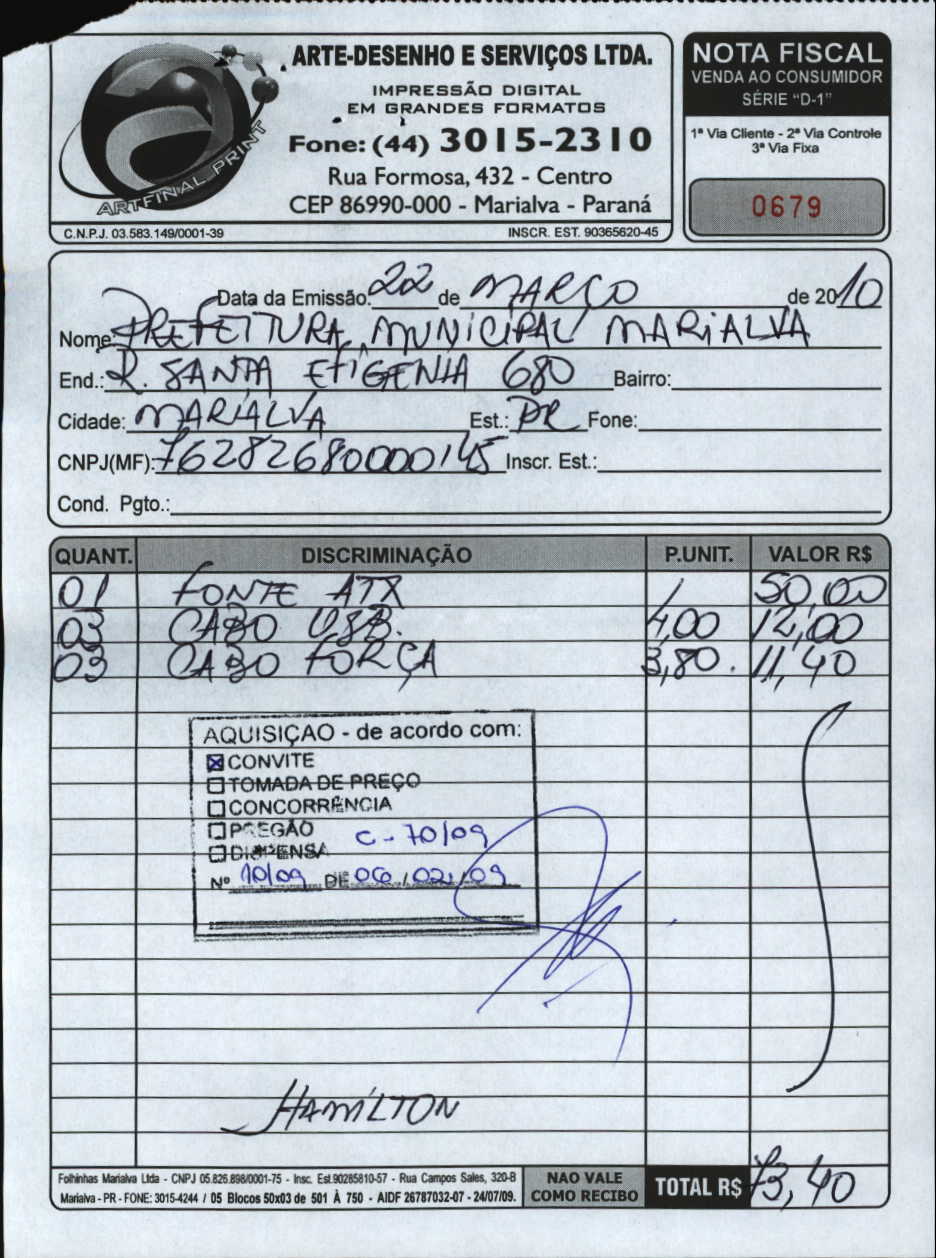 ARTFINAL PRINT
ARTE-DESENHO E SERVIÇOS LTDA.
IMPRESSÃO DIGITAL
EM GRANDES FORMATOS
Fone: (44) 3015-2310
Rua Formosa, 432 - Centro
CEP 86990-000 - Marialva - Paraná
C.N.P.J. 03.583.149/0001-39 INSCR. EST. 90365620-45
NOTA FISCAL
VENDA AO CONSUMIDOR
SÉRIE "D-1"
1ª Via Cliente - 2ª Via Controle
3ª Via Fixa
0679
Data da Emissão: 22 de MARÇO de 2010
Nome: PREFEITURA MUNICIPAL MARIALVA
End.: R. SANTA EFIGENIA 680 Bairro:
Cidade: MARIALVA Est.: PR Fone:
CNPJ(MF): 76282680000145 Inscr. Est.:
Cond. Pgto.:
QUANT. DISCRIMINAÇÃO P.UNIT. VALOR R$
01 FONTE ATX / 50,00
03 CABO USB. 4,00 12,00
03 CABO FORÇA 3,80. 11,40
AQUISIÇAO - de acordo com:
CONVITE
TOMADA DE PREÇO
CONCORRÊNCIA
PREGÃO C-70/09
DISPENSA
Nº 10/09 DE 06/02/09
HAMILTON
Folhinhas Marialva Ltda - CNPJ 05.826.898/0001-75 - Insc. Est.90285810-57 - Rua Campos Sales, 320-B
Marialva - PR - FONE: 3015-4244 / 05 Blocos 50x03 de 501 À 750 - AIDF 26787032-07 - 24/07/09.
NAO VALE
COMO RECIBO
TOTAL R$ 73,40